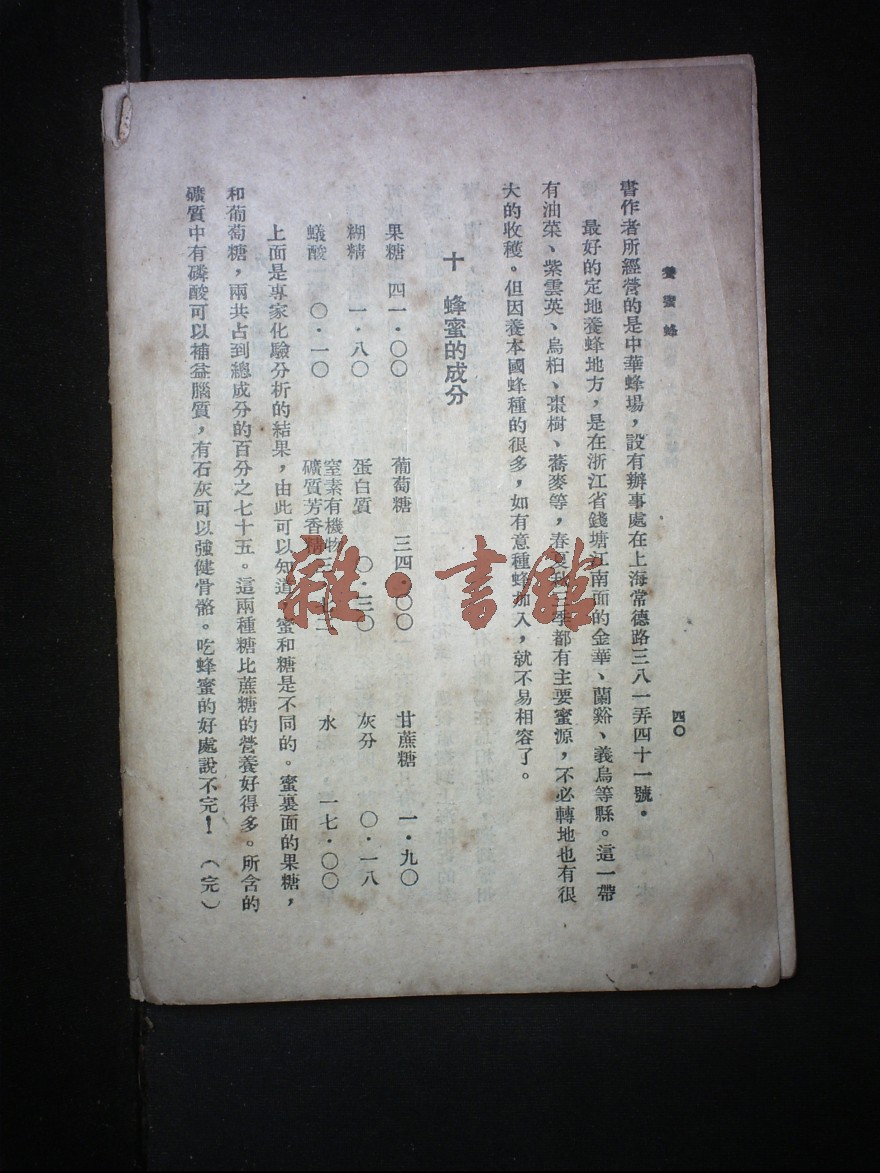 養蜜蜂
四〇
書作者所經營的是中華蜂場，設有辦事處在上海常德路三八一弄四十一號。
最好的定地養蜂地方，是在浙江省錢塘江南面的金華、蘭谿、義烏等縣。這一帶
有油菜、紫雲英、烏桕、棗樹、蕎麥等，春夏秋三季都有主要蜜源，不必轉地也有很
大的收穫。但因養本國蜂種的很多，如有意種蜂加入，就不易相容了。
十　蜂蜜的成分
果糖　四一・〇〇　葡萄糖　三四・〇〇　甘蔗糖　一・九〇
糊精　一・八〇　蛋白質　〇・三〇　灰分　〇・一八
蟻酸　〇・一〇　窒素有機物礦質芳香精　水　一七・〇〇
上面是專家化驗分析的結果，由此可以知道，蜜和糖是不同的。蜜裏面的果糖，
和葡萄糖，兩共占到總成分的百分之七十五。這兩種糖比蔗糖的營養好得多。所含的
礦質中有磷酸可以補益腦質，有石灰可以強健骨骼。吃蜂蜜的好處說不完！（完）
雜・書館